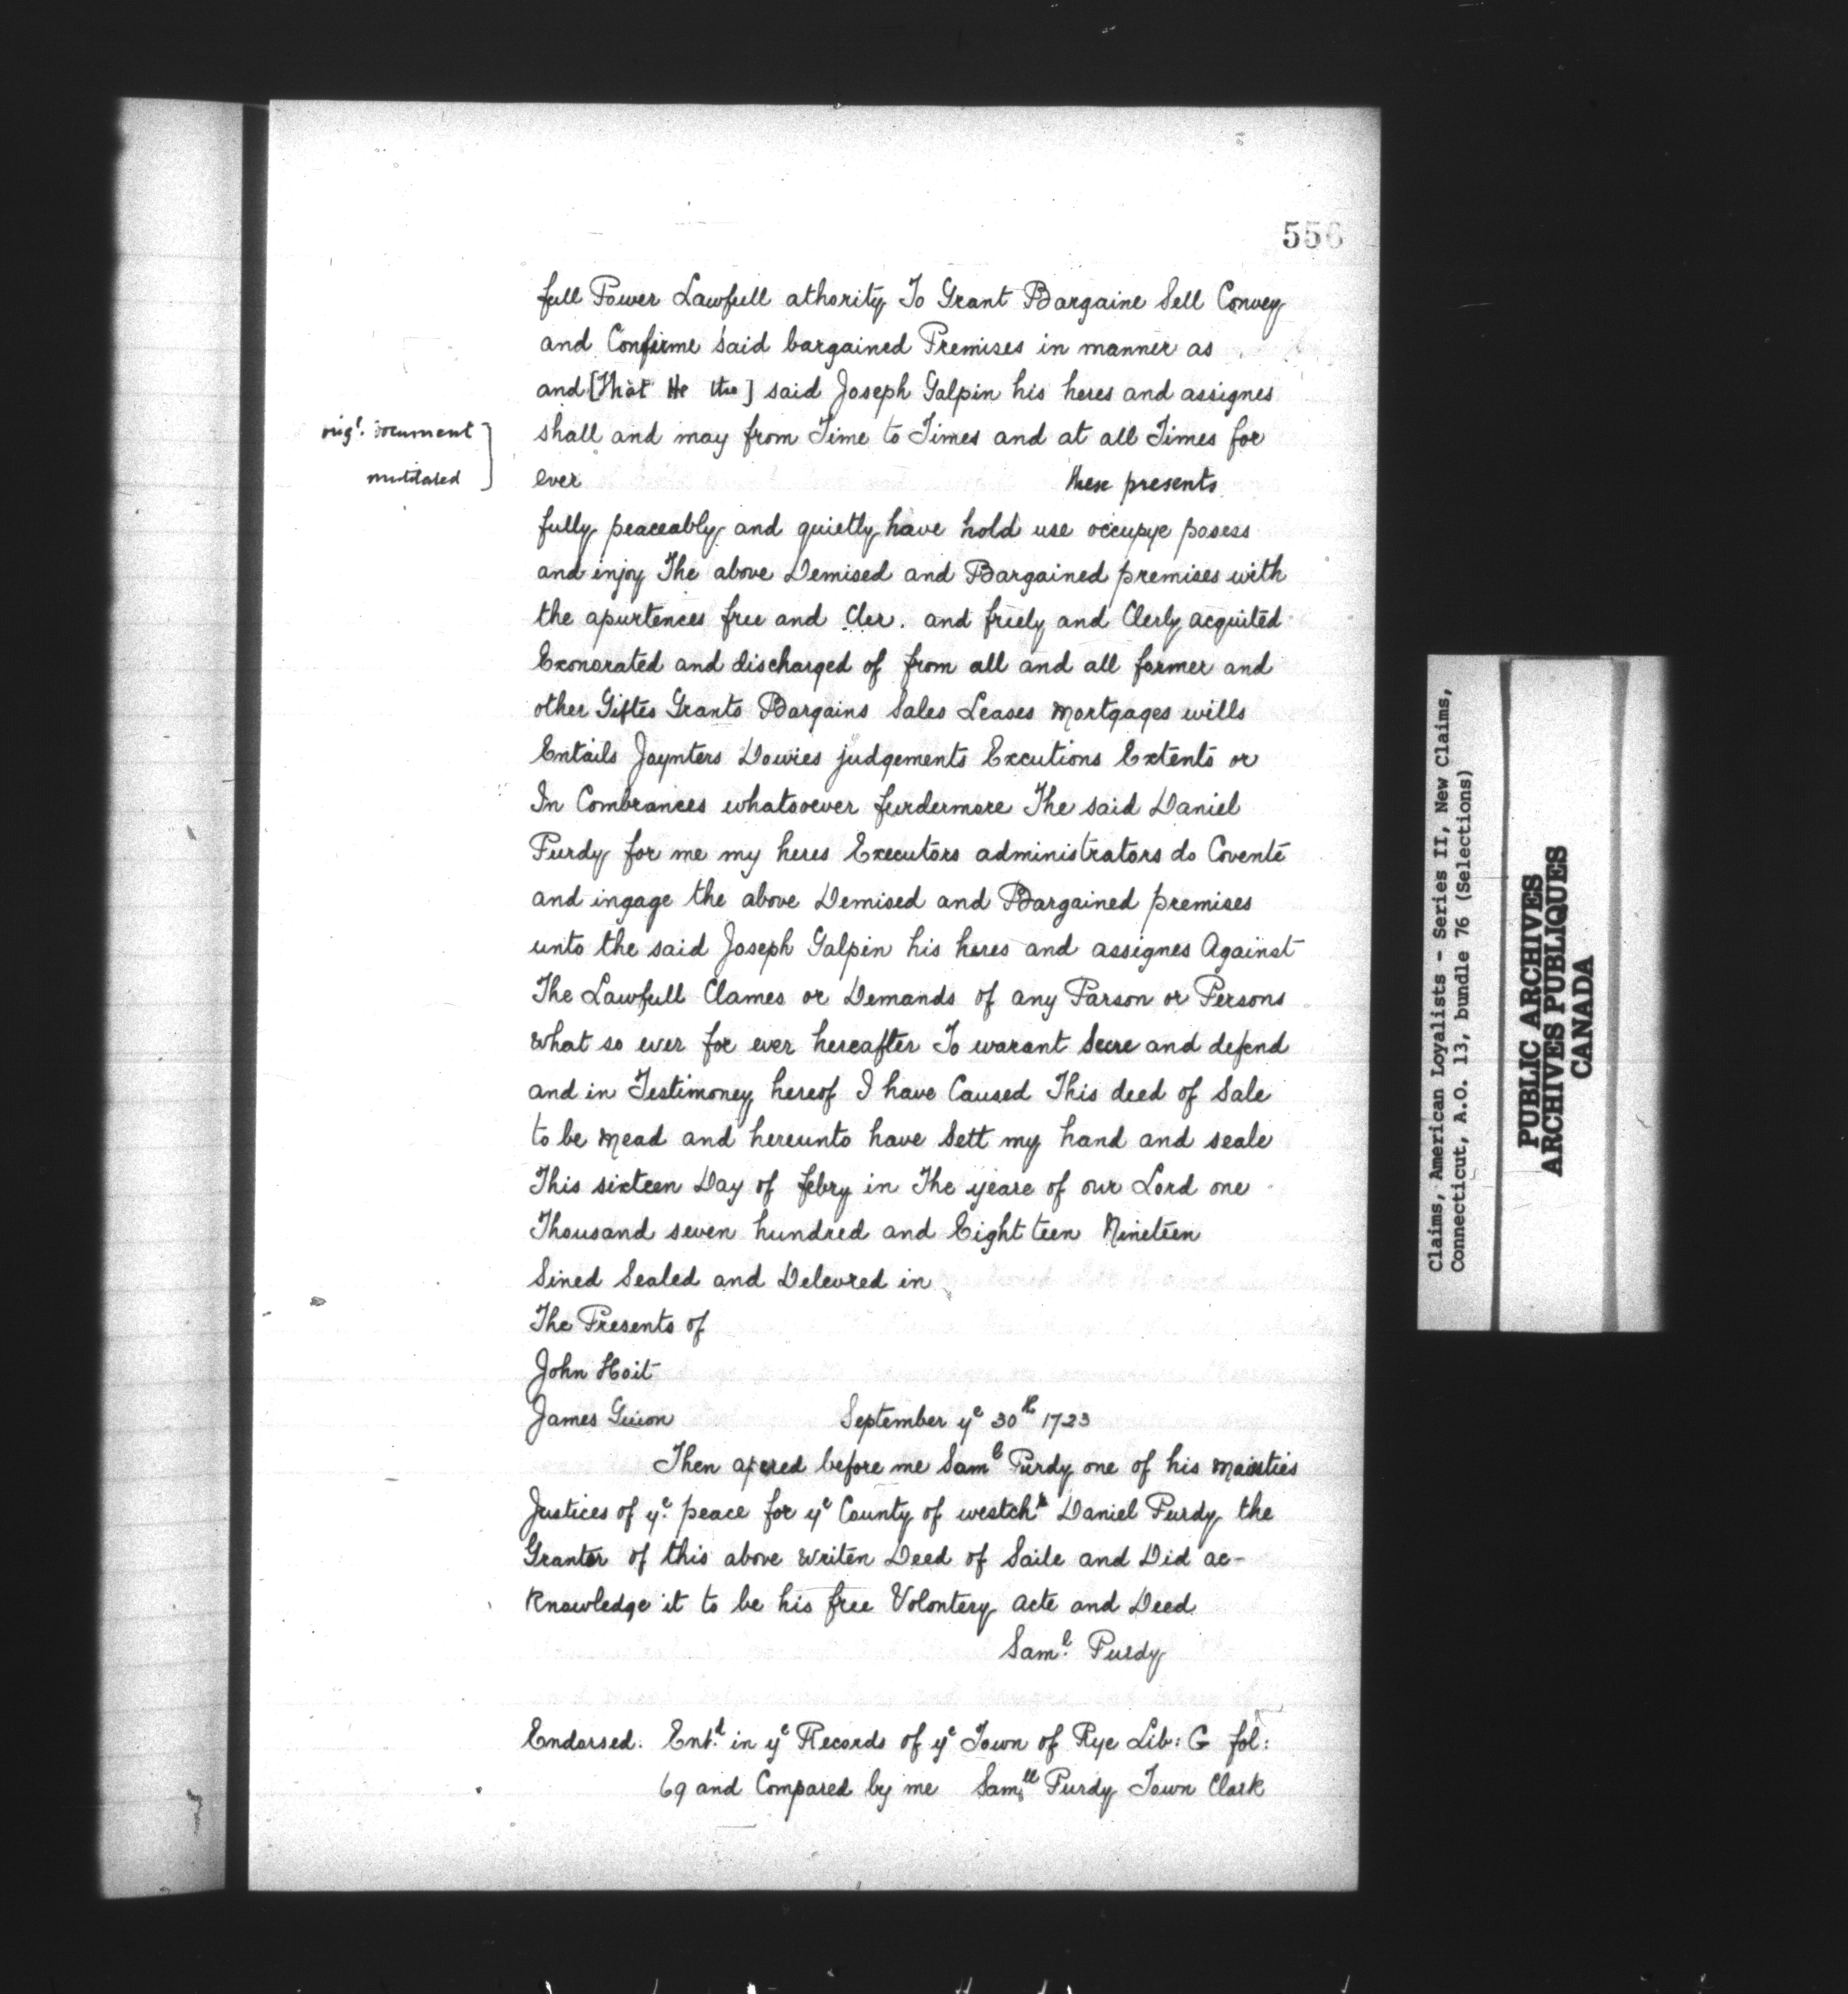 556
full Power Lawfull athority To Grant Bargaine Sell Convey
and Confirme said bargained Premises in manner as
and [That He the] said Joseph Galpin his heres and assignes
shall and may from Time to Times and at all Times for
ever these presents
origl. document
mutilated
fully peaceably and quietly have hold use occupye posess
and injoy The above Demised and Bargained premises with
the apurtences free and Cler. and freely and Clerly acquited
Exonorated and discharged of from all and all former and
other Giftes Grants Bargains Sales Leases Mortgages wills
Entails Joynters Dowries judgements Excutions Extents or
In Combrances whatsoever furdermore The said Daniel
Purdy for me my heres Executors administrators do Covente
and ingage the above Demised and Bargained premises
unto the said Joseph Galpin his heres and assignes Against
The Lawfull Clames or Demands of any Parson or Persons
What so ever for ever hereafter To warant Secre and defend
and in Testimoney hereof I have Caused This deed of Sale
to be Mead and hereunto have Sett my hand and seale
This sixteen Day of febry in The yeare of our Lord one
Thousand seven hundred and Eight teen Nineteen
Sined Sealed and Delevred in
The Presents of
John Hoit
James Guion September ye 30th 1723
Then apered before me Saml Purdy one of his Maisties
Justices of ye peace for ye County of westchr Daniel Purdy the
Grantor of this above Writen Deed of Saile and Did ac-
knowledge it to be his free Volontery acte and Deed
Saml. Purdy
Endorsed. Entd. in ye Records of ye Town of Rye Lib: G fol:
69 and Compared by me Samll Purdy Town Clark
Claims, American Loyalists - Series II, New Claims,
Connecticut, A.O. 13, bundle 76 (Selections)
PUBLIC ARCHIVES
ARCHIVES PUBLIQUES
CANADA